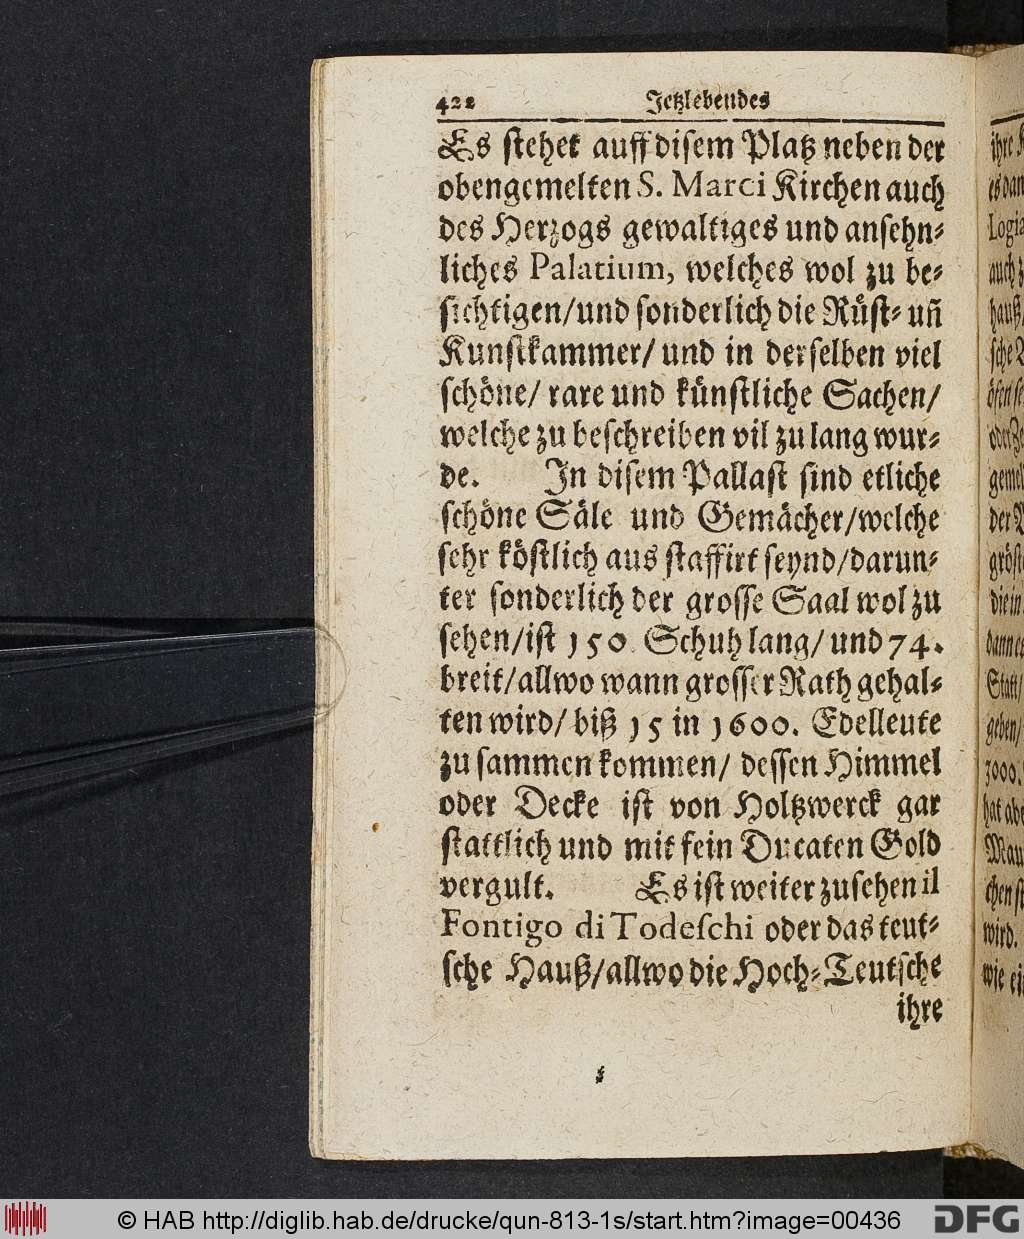 422 Jetzlebendes
Es stehet auff disem Platz neben der
obengemelten S. Marci Kirchen auch
des Herzogs gewaltiges und ansehn-
liches Palatium, welches wol zu be-
sichtigen/und sonderlich die Rüst- uñ
Kunstkammer/ und in derselben viel
schöne/ rare und künstliche Sachen/
welche zu beschreiben vil zu lang wur-
de. In disem Pallast sind etliche
schöne Säle und Gemächer/welche
sehr köstlich aus staffirt seynd/darun-
ter sonderlich der grosse Saal wol zu
sehen/ist 150. Schuh lang/ und 74.
breit/allwo wann grosser Rath gehal-
ten wird/ biß 15 in 1600. Edelleute
zu sammen kommen/ dessen Himmel
oder Decke ist von Holtzwerck gar
stattlich und mit fein Ducaten Gold
vergult. Es ist weiter zusehen il
Fontigo di Todeschi oder das teut-
sche Hauß/allwo die Hoch-Teutsche
ihre
ihre
Logia
auch
hauß
sche
gemel
der
gröste
die in
Statt/
geben/
3000.
hat abe
Mau
chen st
wird.
wie ein
© HAB http://diglib.hab.de/drucke/qun-813-1s/start.htm?image=00436
DFG